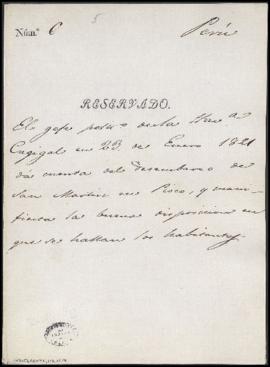 Núm.º 6
5
Perú
RESERVADO.
El gefe polit.º de la Hav.ª
Cagigal en 23. de Enero 1821
dá cuenta del desembarco de
San Martin en Pisco, y mani-
fiesta la buena disposicion en
que se hallan los habitantes